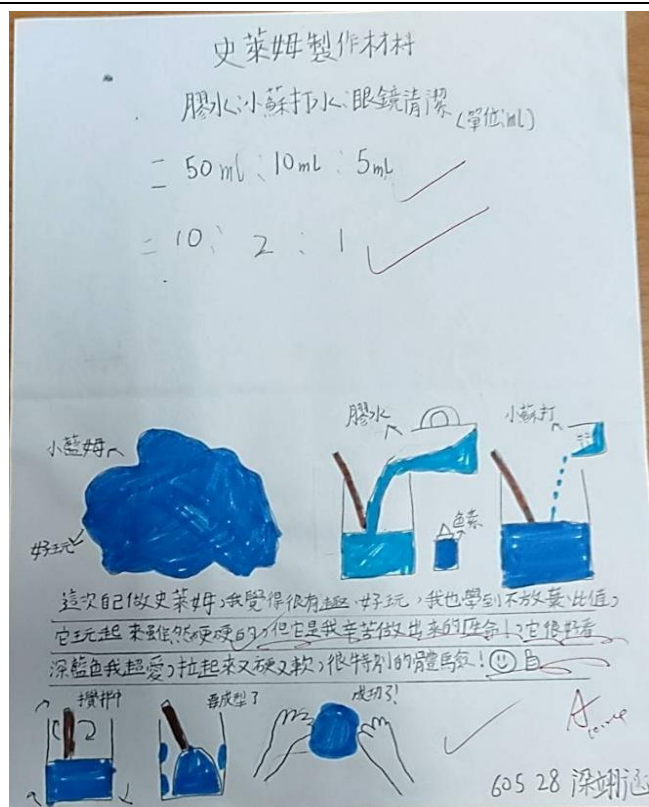 史萊姆製作材料
膠水:小蘇打水:眼鏡清潔(單位:ml)
= 50ml : 10ml : 5ml
= 10 : 2 : 1
小藍姆
好玩
膠水
色素
小蘇打
這次自己做史萊姆,我覺得很有趣、好玩,我也學到不放棄、比值,
它玩起來雖然硬硬的,但它是我辛苦做出來的生命!,它很好看
深藍色我超愛,拉起來又硬又軟,很特別的體驗!
攪拌中
要成型了
成功了!
A
605 28 梁翊涵